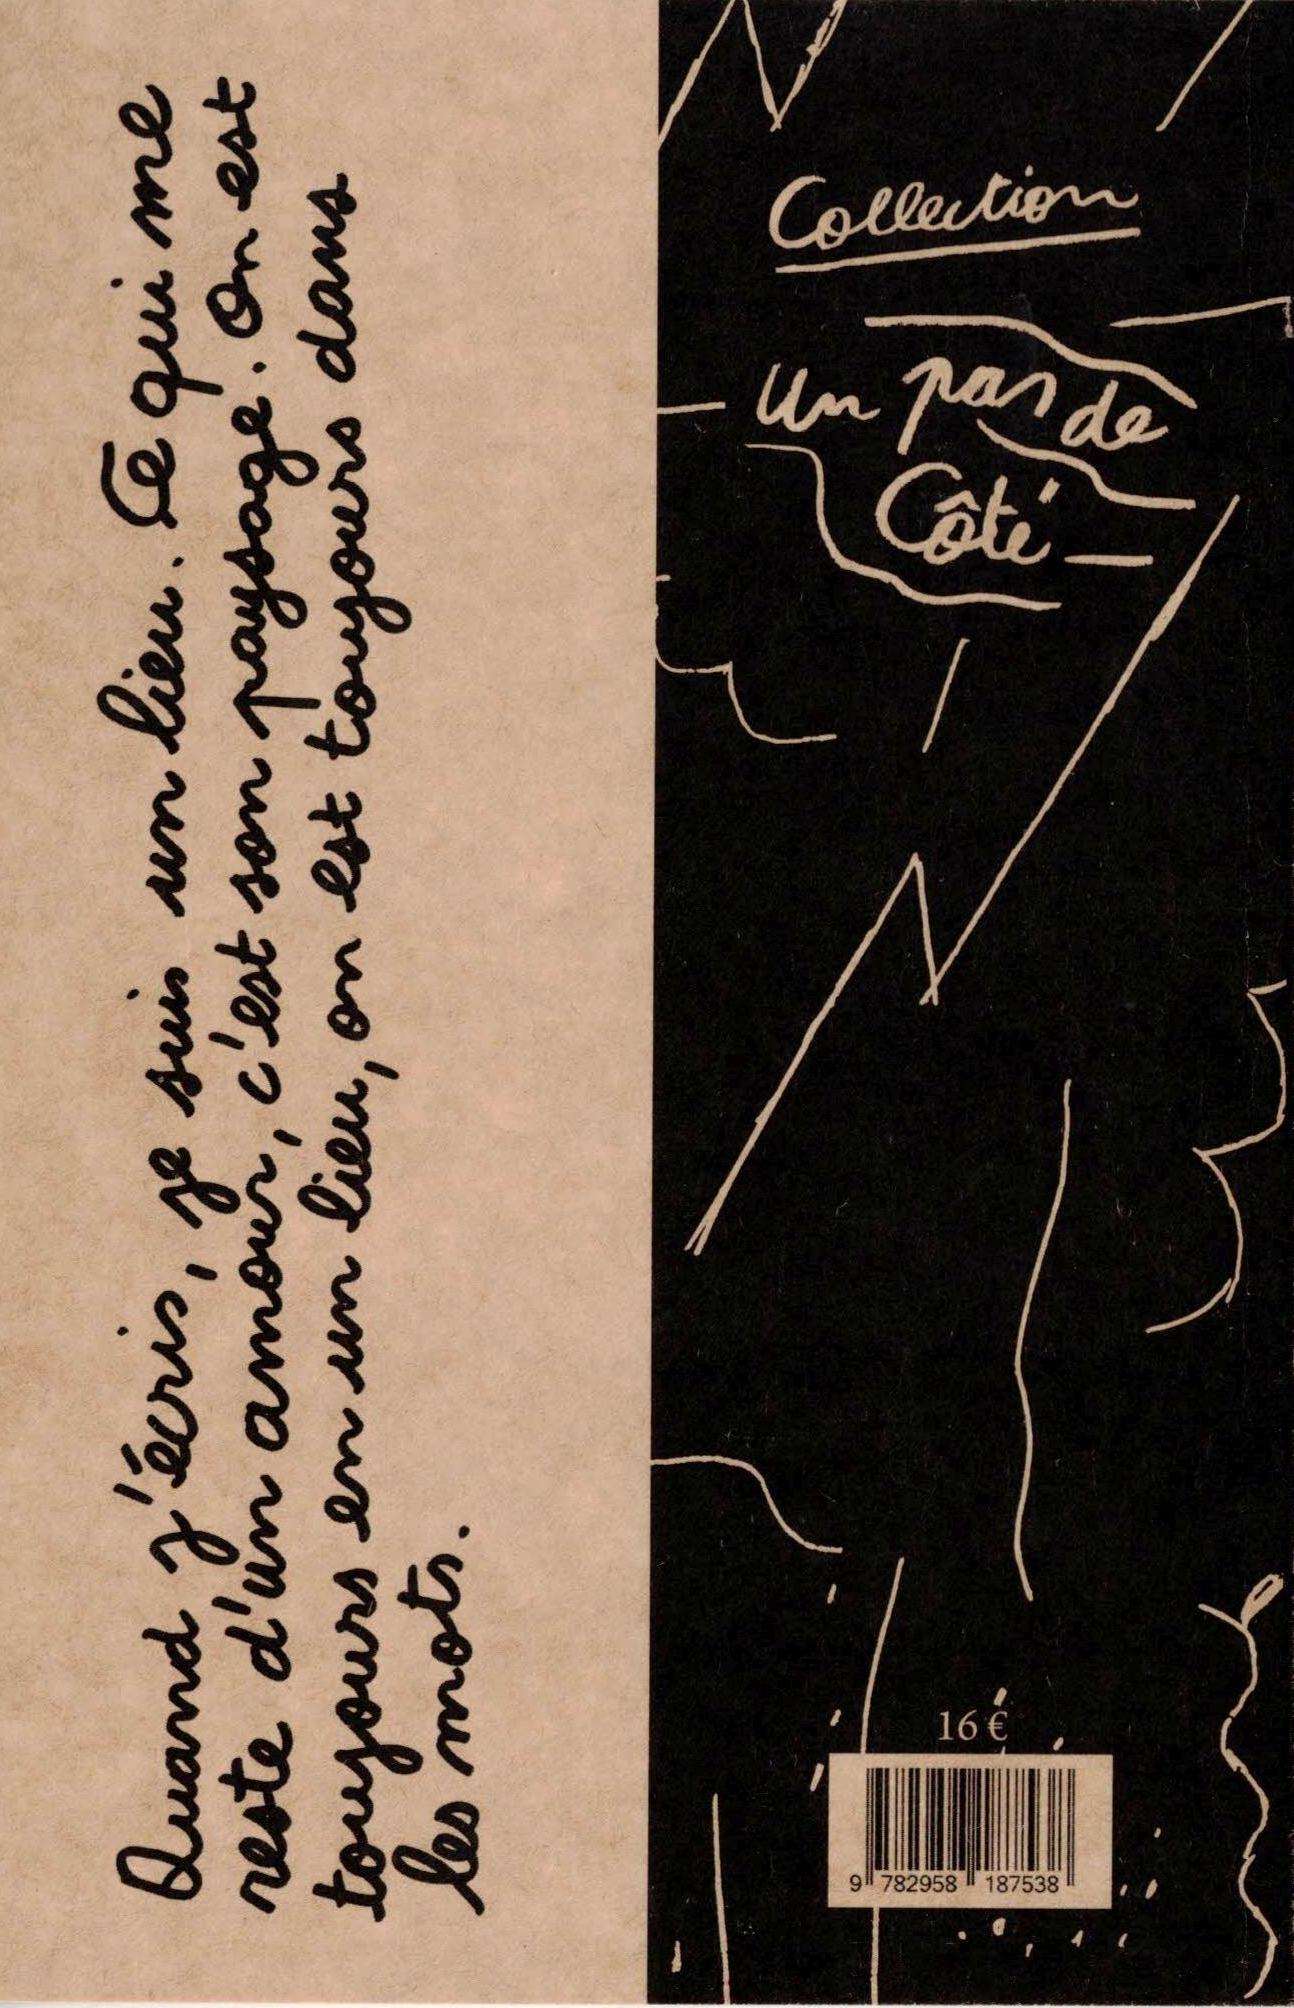 Quand j'écris, je suis un lieu. Ce qui me
reste d'un amour, c'est son paysage. On est
toujours en un lieu, on est toujours dans
les mots.
Collection
Un pas de
Côté
16 €
9 782958 187538